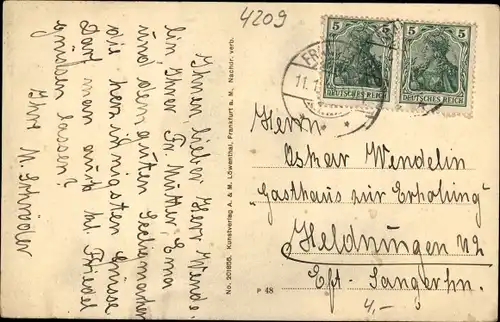 4209
Ihnen lieber Herr Wende-
lin Ihrer Fr. Mutter, Erna
und dem guten
die herzinnigsten Grüsse
Darf man auch kl. Friedel
grüssen lassen?
Ihr N. Schröder
No. 201856. Kunstverlag A. & M. Löwenthal, Frankfurt a. M. Nachdr. verb.
P 48
5 5
DEUTSCHES REICH
5 5
DEUTSCHES REICH
Herrn
Oskar Wendelin
"Gasthaus zur Erholung"
Heldrungen
Sangerhn.
4,-